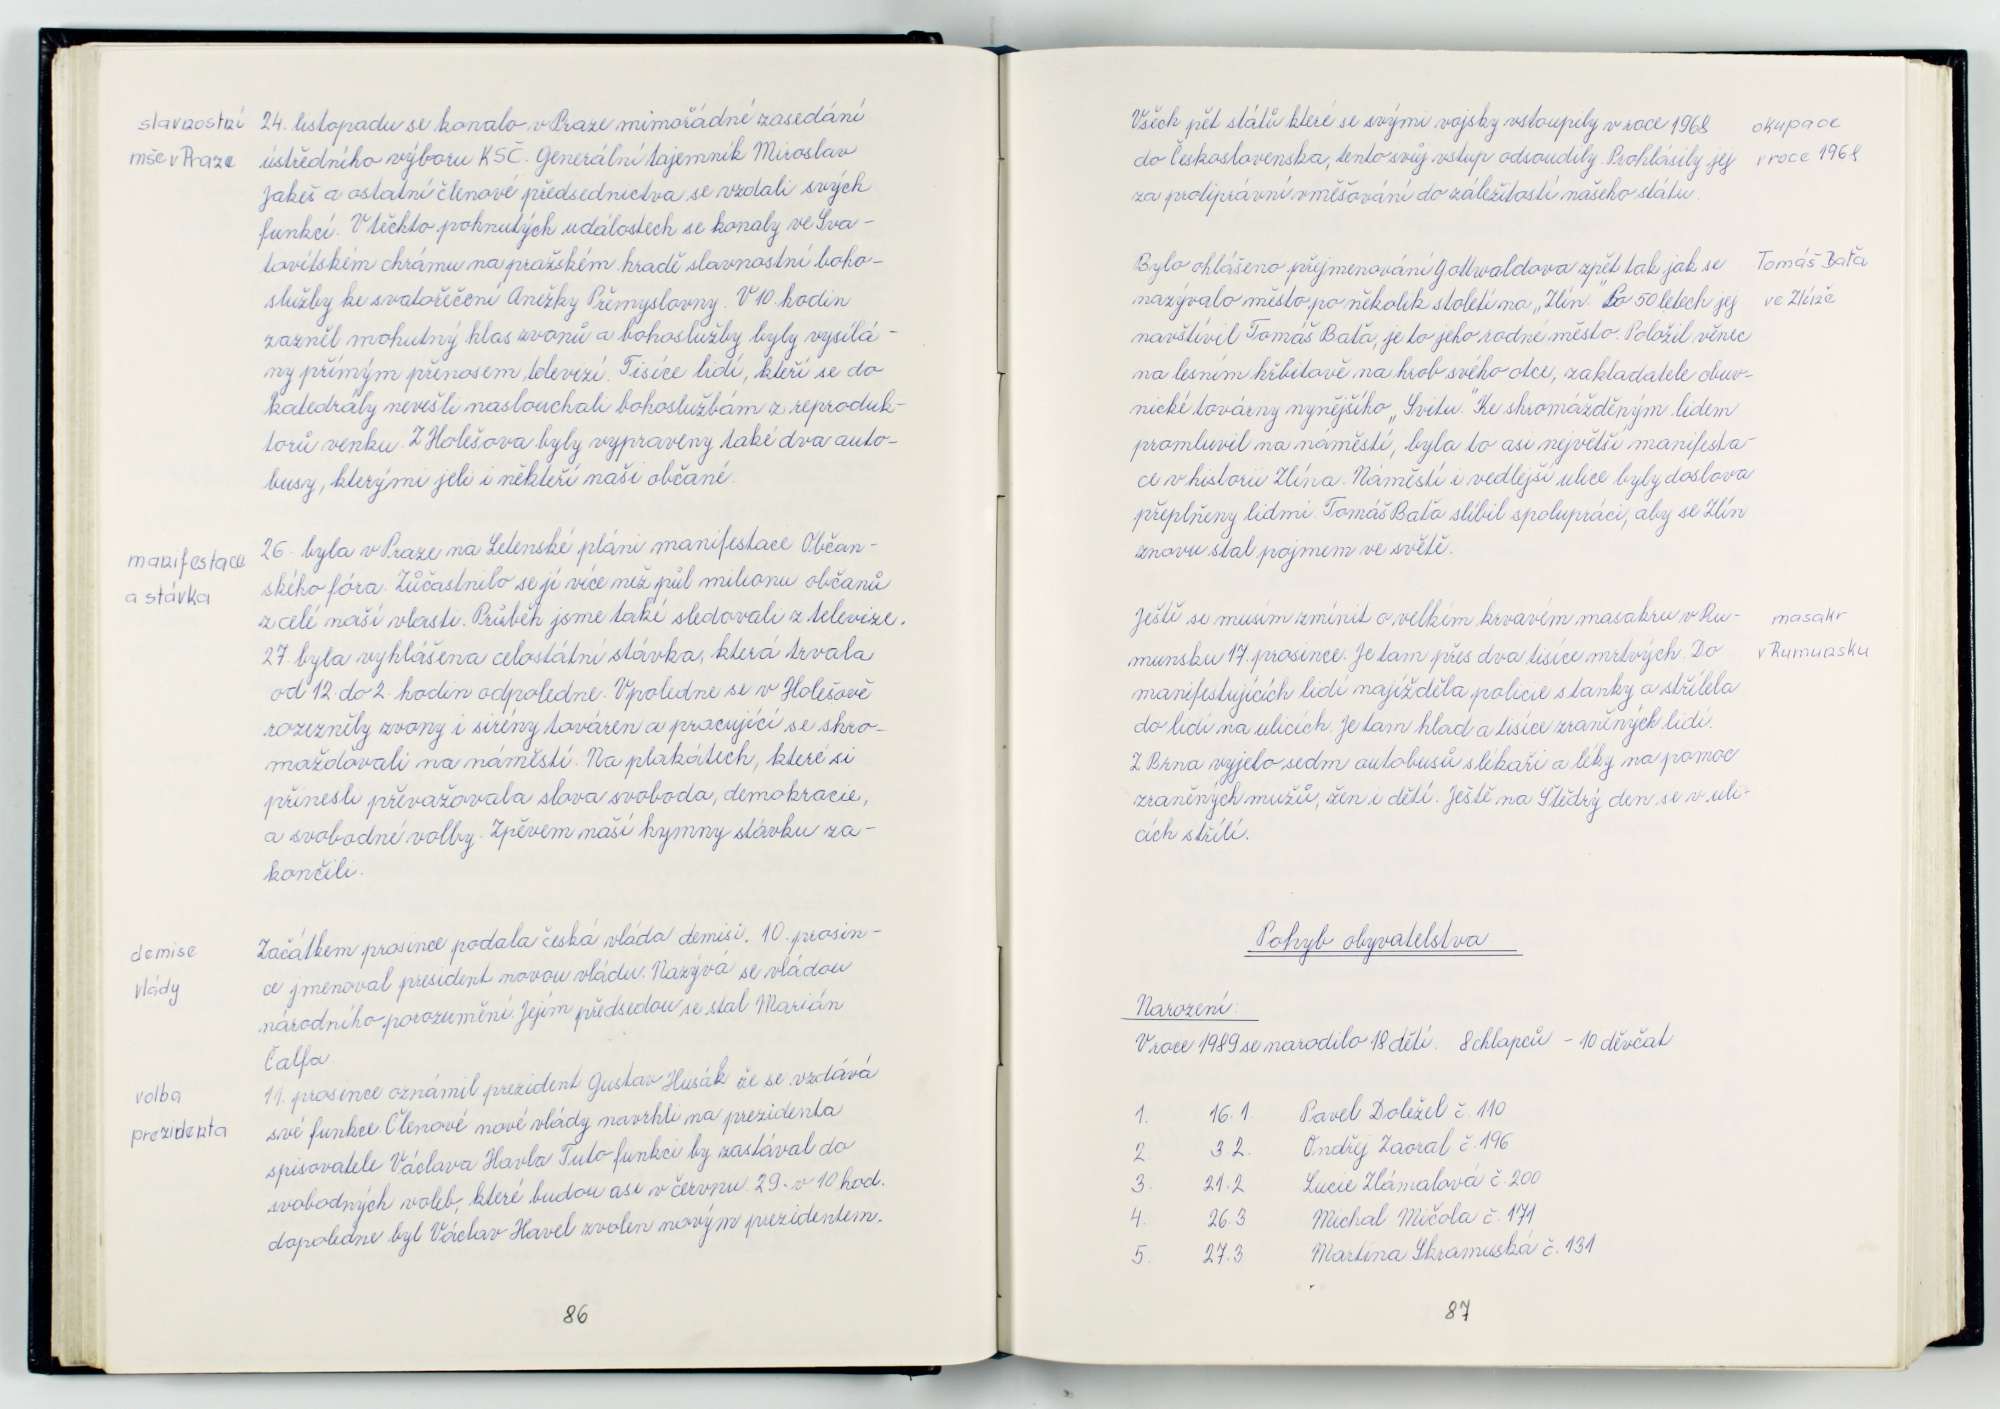 slavnostní
mše v Praze
24. listopadu se konalo v Praze mimořádné zasedání
ústředního výboru KSČ. Generální tajemník Miroslav
Jakeš a ostatní členové předsednictva se vzdali svých
funkcí. V těchto pohnutých událostech se konaly ve Sva-
tovítském chrámu na pražském hradě slavnostní boho-
služby ke svatořečení Anežky Přemyslovny. V 10. hodin
zazněl mohutný hlas zvonů a bohoslužby byly vysílá-
ny přímým přenosem televizí. Tisíce lidí, kteří se do
katedrály nevešli naslouchali bohoslužbám z reproduk-
torů venku. Z Holešova byly vypraveny také dva auto-
busy, kterými jeli i někteří naši občané.
manifestace
a stávka
26. byla v Praze na Letenské pláni manifestace Občan-
ského fóra. Zůčastnilo se jí více než půl milionu občanů
z celé naší vlasti. Průběh jsme také sledovali z televize.
27. byla vyhlášena celostátní stávka, která trvala
od 12. do 2. hodin odpoledne. V poledne se v Holešově
rozezněly zvony i sirény továren a pracující se shro-
mažďovali na náměstí. Na plakátech, které si
přinesli převažovala slova svoboda, demokracie,
a svobodné volby. Zpěvem naší hymny stávku za-
končili.
demise
vlády
Začátkem prosince podala česká vláda demisi. 10. prosin-
ce jmenoval president novou vládu. Nazývá se vládou
národního porozumění. Jejím předsedou se stal Marián
Čalfa
volba
prezidenta
11. prosince oznámil prezident Gustav Husák že se vzdává
své funkce. Členové nové vlády navrhli na prezidenta
spisovatele Václava Havla Tuto funkci by zastával do
svobodných voleb, které budou asi v červnu. 29. v 10 hod.
dopoledne byl Václav Havel zvolen novým prezidentem.
86
Všech pět států které se svými vojsky vstoupily v roce 1968
do Československa, tento svůj vstup odsoudily. Prohlásily jej
za protiprávní vměšování do záležitostí našeho státu.
okupace
v roce 1968
Bylo ohlášeno přejmenování Gottwaldova zpět tak jak se
nazývalo město po několik století na „Zlín." Po 50 letech jej
navštívil Tomáš Baťa, je to jeho rodné město. Položil věnec
na lesním hřbitově na hrob svého otce, zakladatele obuv-
nické továrny nynějšího „Svitu." Ke shromážděným lidem
promluvil na náměstí, byla to asi největší manifesta-
ce v historii Zlína. Náměstí i vedlejší ulice byly doslova
přeplňeny lidmi. Tomáš Baťa slíbil spolupráci, aby se Zlín
znovu stal pojmem ve světě.
Tomáš Baťa
ve Zlíně
Ještě se musím zmínit o velkém krvavém masakru v Ru-
munsku 17. prosince. Je tam přes dva tisíce mrtvých. Do
manifestujících lidí najížděla policie s tanky a střílela
do lidí na ulicích. Je tam hlad a tisíce zraněných lidí.
Z Brna vyjelo sedm autobusů s lékaři a léky na pomoc
zraněných mužů, žen i dětí. Ještě na Štědrý den se v uli-
cích střílí.
masakr
v Rumunsku
Pohyb obyvatelstva
Narození:
V roce 1989 se narodilo 18 dětí. 8 chlapců - 10 děvčat
1. 16.1. Pavel Doležel č. 110
2. 3.2. Ondřej Zaoral č. 196
3. 21.2 Lucie Zlámalová č. 200
4. 26.3 Michal Mičola č. 171
5. 27.3 Martina Skramuská č. 131
87